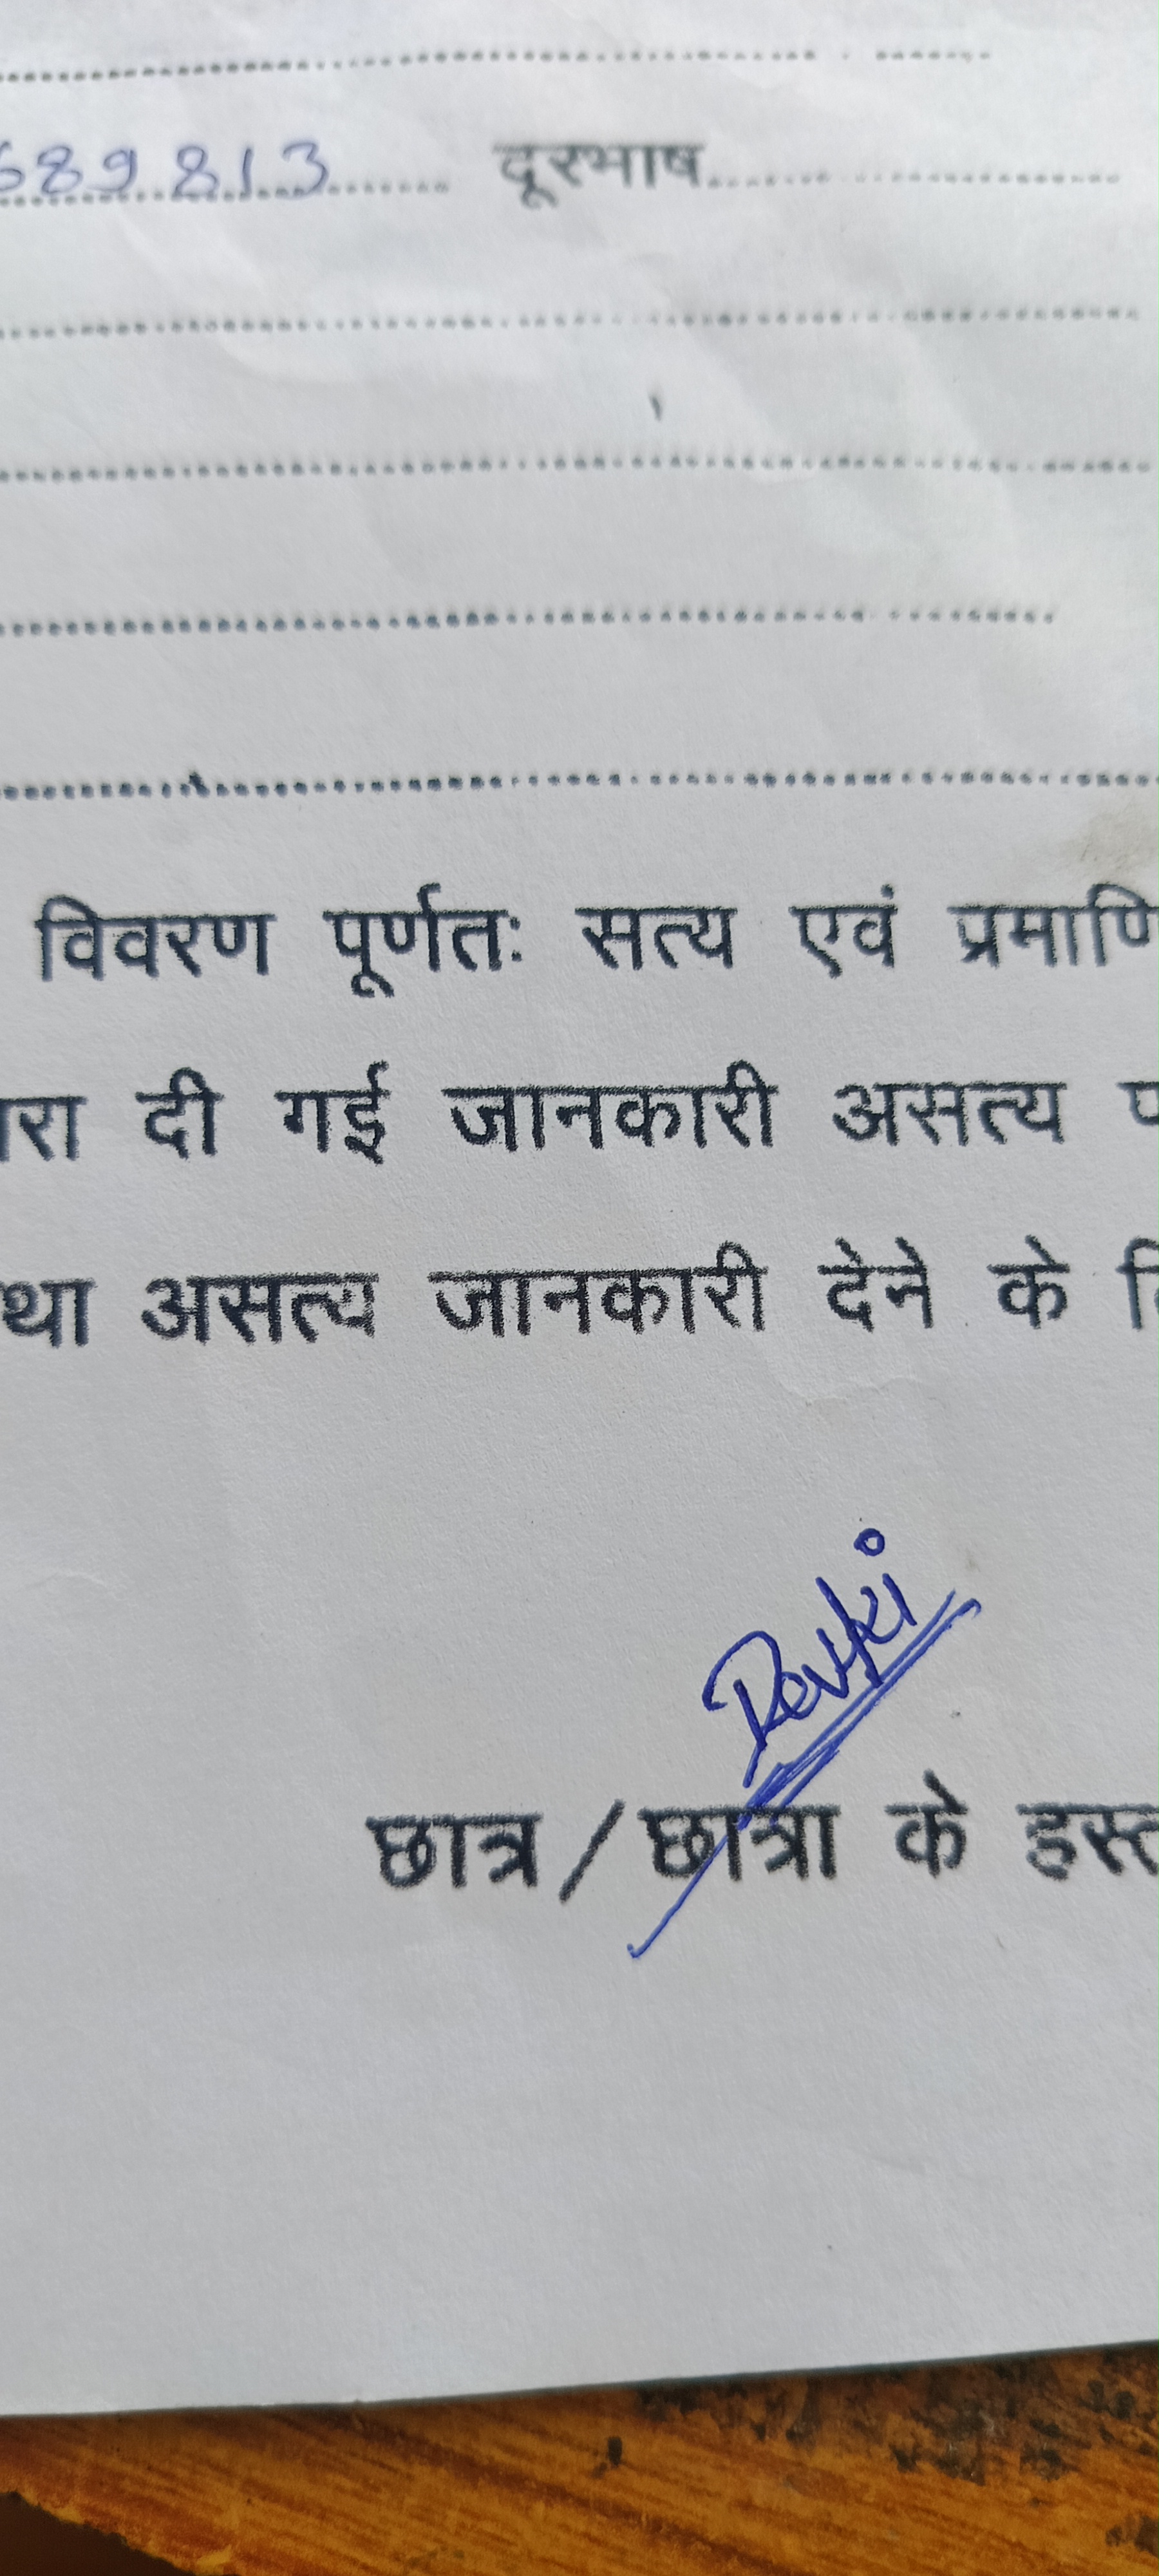 689813 दूरभाष
विवरण पूर्णतः सत्य एवं
दी गई जानकारी असत्य
असत्य जानकारी देने के
Devki
छात्र / छात्रा के